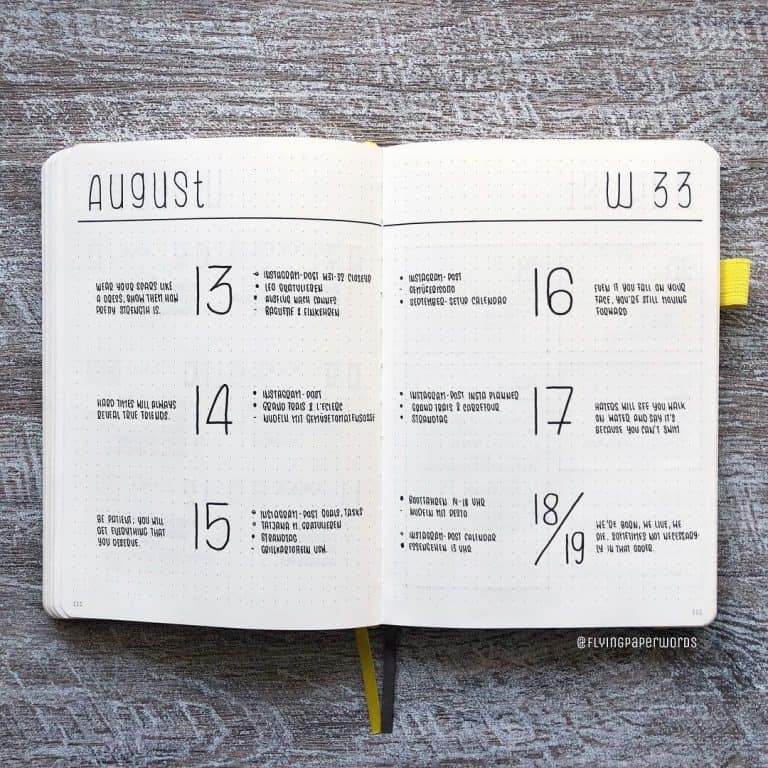 August
WEAR YOUR SCARS LIKE
A DRESS, SHOW THEM HOW
PRETTY STRENGTH IS.
13
INSTAGRAM-POST W31-32 CLOSEUP
LEO GRATULIEREN
AUSFLUG NACH CANNES
- BAGUETTE & EINKEHREN
HARD TIMES WILL ALWAYS
REVEAL TRUE FRIENDS.
14
• INSTAGRAM-POST
• GRAND FRAIS & L'ECLERC
NUDELN MIT GEMÜSETOMATENSOSSE
BE PATIENT; YOU WILL
GET EVERYTHING THAT
YOU DESERVE.
15
INSTAGRAM-POST GOALS, TASKS
• TATJANA M. GRATULIEREN
• STRANDTAG
- GRILLKARTOFFELN USW.
W 33
• INSTAGRAM-POST
- GEMÜSERISOTTO
• SEPTEMBER-SETUP CALENDAR
16
EVEN IF YOU FALL ON YOUR
FACE, YOU'RE STILL MOVING
FORWARD
• INSTAGRAM-POST INSTA PLANNER
• GRAND FRAIS & CARREFOUR
• STRANDTAG
17
HATERS WILL SEE YOU WALK
ON WATER AND SAY IT'S
BECAUSE YOU CAN'T SWIM
• BOOTFAHREN 14-18 UHR
- NUDELN MIT PESTO
• INSTAGRAM-POST CALENDAR
• ESSENGEHEN 13 UHR
18/19
WE'RE BORN, WE LIVE, WE
DIE, SOMETIMES NOT NECESSARI-
LY IN THAT ORDER.
@FLYINGPAPERWORDS